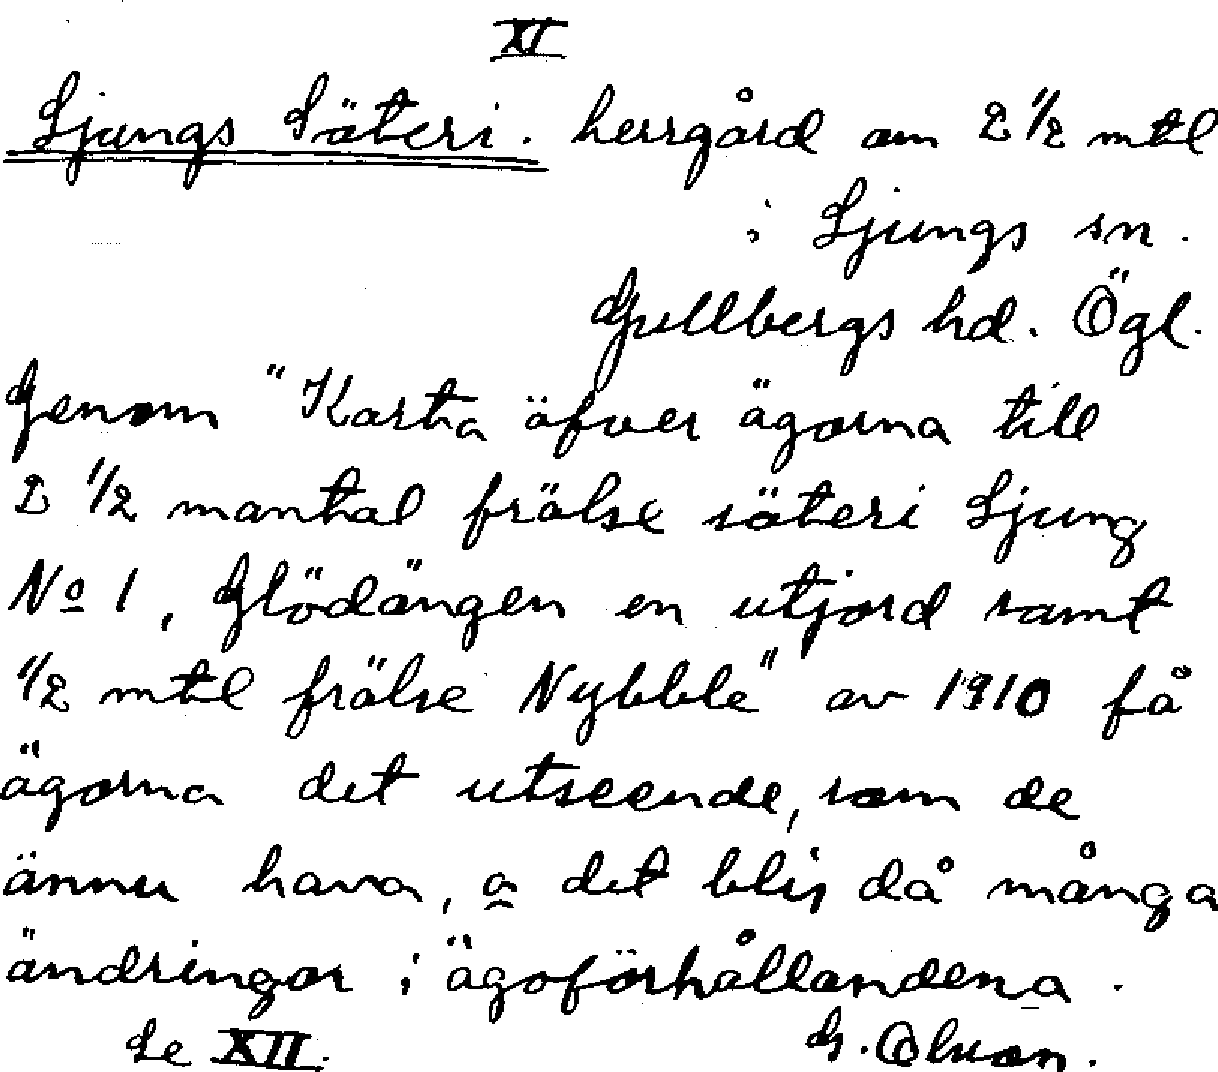 XI
Ljungs Säteri. herrgård om 2 1/2 mtl
i Ljungs sn.
Gullbergs hd. Ögl.
Genom "Karta öfver ägorna till
2 1/2 mantal frälse säteri Ljung
No 1, Glödängen en utjord samt
1/2 mtl frälse Nybble" av 1910 få
ägorna det utseende, som de
ännu hava, o det blir då många
ändringar i ägoförhållandena.
Se XII.
G.